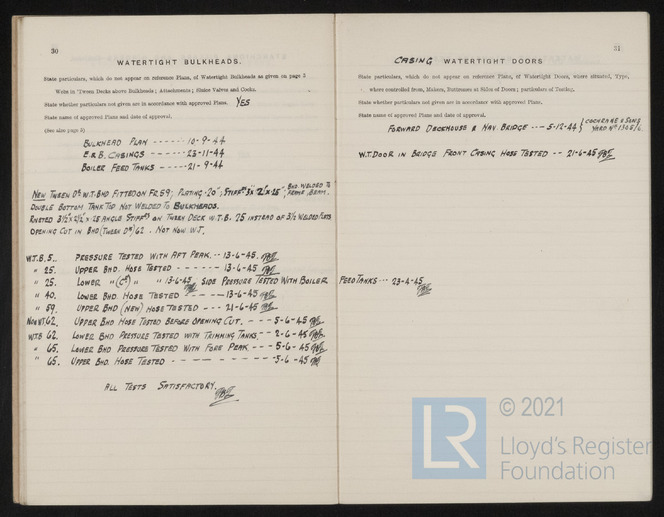 30
WATERTIGHT BULKHEADS.
State particulars, which do not appear on reference Plans, of Watertight Bulkheads as given on page 2
Webs in 'Tween Decks above Bulkheads; Attachments; Sluice Valves and Cocks.
State whether particulars not given are in accordance with approved Plans. YES
State name of approved Plans and date of approval.
(See also page 2)
BULKHEAD PLAN ------ 10-9-44
E.R.B. CASINGS ---- 23-11-44
BOILER FEED TANKS --- 21-9-44
NEW TWEEN DK W.T. BHD FITTED ON FR. 59; PLATING .20"; STIFFRS 3" x 2" x .25" ; BHD. WELDED TO FRAME & BEAM.
DOUBLE BOTTOM TANK TOP NOT WELDED TO BULKHEADS.
RIVETED 3½" x 2½" x .25 ANGLE STIFFRS ON TWEEN DECK W.T.B. 75 INSTEAD OF 3½ WELDED FLATS
OPENING CUT IN BHD (TWEEN DK) 62. NOT NOW W.T.
W.T.B. 5.. PRESSURE TESTED WITH AFT PEAK. -- 13-6-45.
" 25. UPPER BHD. HOSE TESTED ------- 13-6-45
" 25 LOWER " " " 13-6-45 SIDE PRESSURE TESTED WITH BOILER FEED TANKS --- 23-4-45
" 40. LOWER BHD. HOSE TESTED ------13-6-45
" 59. UPPER BHD (NEW) HOSE TESTED --- 21-6-45
NOW WT. 62. UPPER BHD HOSE TESTED BEFORE OPENING CUT. --- 5-6-45
W.T.B 62. LOWER BHD PRESSURE TESTED WITH TRIMMING TANKS, -- 2-6-45
" 65. LOWER BHD PRESSURE TESTED WITH FORE PEAK --- 5-6-45
" 65. UPPER BHD. HOSE TESTED ------ 5-6-45
ALL TESTS SATISFACTORY.
31
CASING WATERTIGHT DOORS
State particulars, which do not appear on reference Plans, of Watertight Doors, where situated, Type,
where controlled from, Makers, Buttresses at Sides of Doors; particulars of Testing.
State whether particulars not given are in accordance with approved Plans.
State name of approved Plans and date of approval.
FORWARD DECKHOUSE & NAV. BRIDGE --- 5-12-44 } COCHRANE & SONS YARD Nº 1305/6.
W.T. DOOR IN BRIDGE FRONT CASING HOSE TESTED -- 21-6-45
© 2021
LR
Lloyd's Register
Foundation